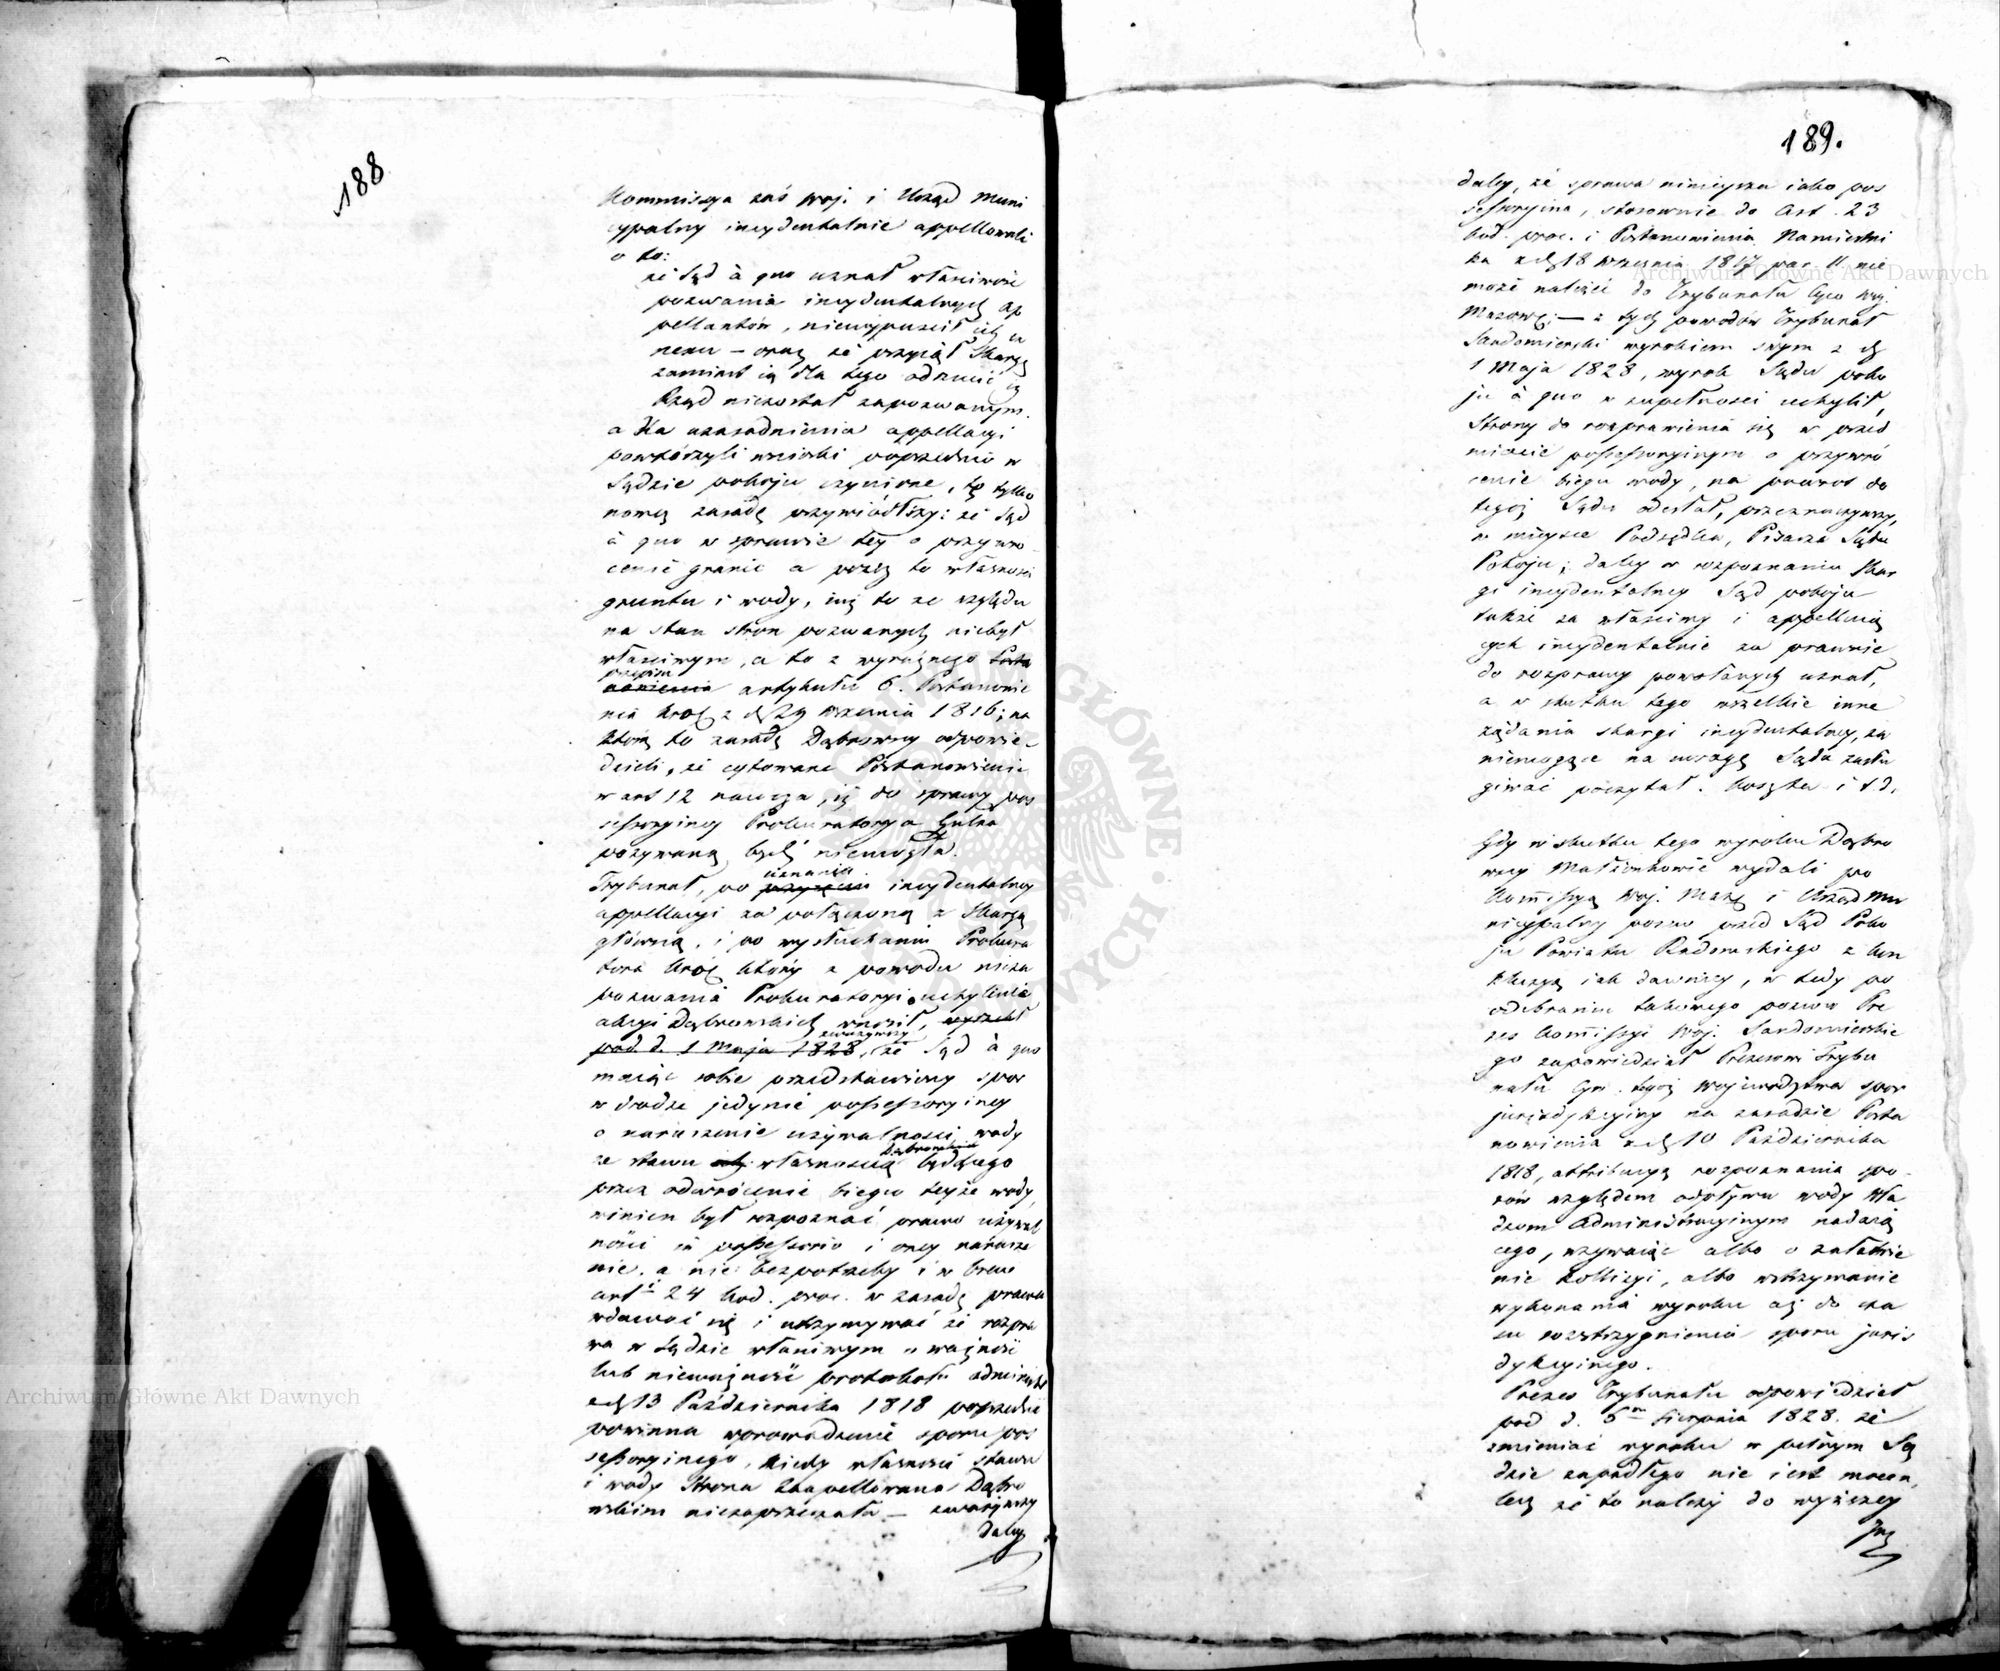 188
Kommissya zaś Woj. i Urząd Muni
cypalny incydentalnie appellowali
o to:
że Sąd à quo uznał właściwość
pozwania incydentalnych ap
pellantów, niewypuścił ich z
nexu – oraz że przyiął Skargę
zamiast ią dla tego odrzucić iż
Rząd niezostał zapozwanym.
a dla uzasadnienia appellacyi
powtórzyli wnioski poprzednio w
Sądzie pokoju czynione, tę tylko
nową zasadę przywiódłszy: że Sąd
à quo w sprawie tey o przywró
cenie granic a przez to własności
gruntu i wody, iuż to ze względu
na stan stron pozwanych niebył
właściwym, a to z wyraźnego
przepisu artykułu 6. Postanowie
nia Król. z d. 29 Września 1816; na
którą to zasadę Dąbrowscy odpowie-
dzieli, że cytowane Postanowienie
w art 12 naucza, iż do sprawy pos
sessoryiney Prokuratorya Gulna
pozywaną bydź niemogła.
Trybunał, po uznaniu incydentalney
appellacyi za połączoną z Skargą
główną, i po wysłuchaniu Prokura
tora Król. który z powodu nieza
pozwania Prokuratoryi uchylenia
akcyi Dąbrowskich wnosił, wyrzekł
pod d. 1 Maja 1828, zważywszy że Sąd à quo
maiąc sobie przedstawiony spór
w drodze jedynie possessoryiney
o naruszenie używalności wody
ze stawu własnością Dąbrowskich będącego
przez odwrócenie biegu teyże wody,
winien był rozpoznać prawo używal
ności in possessorio i oney narusze
nie, a nie bez potrzeby i w brew
art. 24 Kod. proc. w zasadę prawa
wdawać się i utrzymywać że rozpra
wa w Sądzie właściwym o ważność
lub nieważność protokołu administr
z d. 13 Października 1818 poprzedzić
powinna wprowadzenie sporu pos
sessoryinego, kiedy własności stawu
i wody Strona Zaappellowana Dąbro
wskim niezaprzeczała – zważywszy
daley
189.
daley, że sprawa ninieysza iako pos
sessoryina, stosownie do Art. 23
Kod. proc. i Postanowienia Namiestni
ka z d. 18 Września 1817 par. 11. nie
może należeć do Trybunału Cyw. Woj.
Mazow. — z tych powodów Trybunał
Sandomierski wyrokiem swym z d.
1 Maja 1828, wyrok Sądu poko
ju à quo w zupełności uchylił,
Strony do rozprawienia się w przed
miocie possessoryinym o przywró
cenie biegu wody, na powrót do
tegoż Sądu odesłał, przeznaczywszy,
w mieysce Podsędka, Pisarza Sądu
Pokoju; daley w rozpoznaniu Skar
gi incydentalney Sąd pokoju
także za właściwy i appelluią
cych incydentalnie za prawnie
do rozprawy powołanych uznał,
a w skutku tego wszelkie inne
żądania skargi incydentalney, za
niemogące na uwagę Sądu zasłu
giwać poczytał. Koszta i t.d.
Gdy w skutku tego wyroku Dąbro
wscy Małżonkowie wydali po
Kom̄issyą Woj. Maz. i Urząd Mu
nicypalny pozew przed Sąd Poko
ju Powiatu Radomskiego z kon
kluzyą iak dawniey, w tedy po
odebraniu takowego pozwu Pre
zes Kom̄issyi Woj. Sandomierskie
go zapowiedział Prezesowi Trybu
nału Cyw. tegoż Województwa spór
jurisdykcyiny na zasadzie Posta
nowienia z d. 10 Października
1818, attribucyą rozpoznania spo-
rów względem odpływu wody Wła
dzom Administracyinym nadaią
cego, wzywaiąc albo o załatwie
nie kollizyi, albo wstrzymanie
wykonania wyroku aż do cza
su rozstrzygnienia sporu juris
dykcyinego.
Prezes Trybunału odpowiedział
pod d. 5m Sierpnia 1828. że
zmieniać wyroku w pełnym Są
dzie zapadłego nie iest mocen,
lecz że to należy do wyższey
Archiwum Główne Akt Dawnych
Archiwum Główne Akt Dawnych